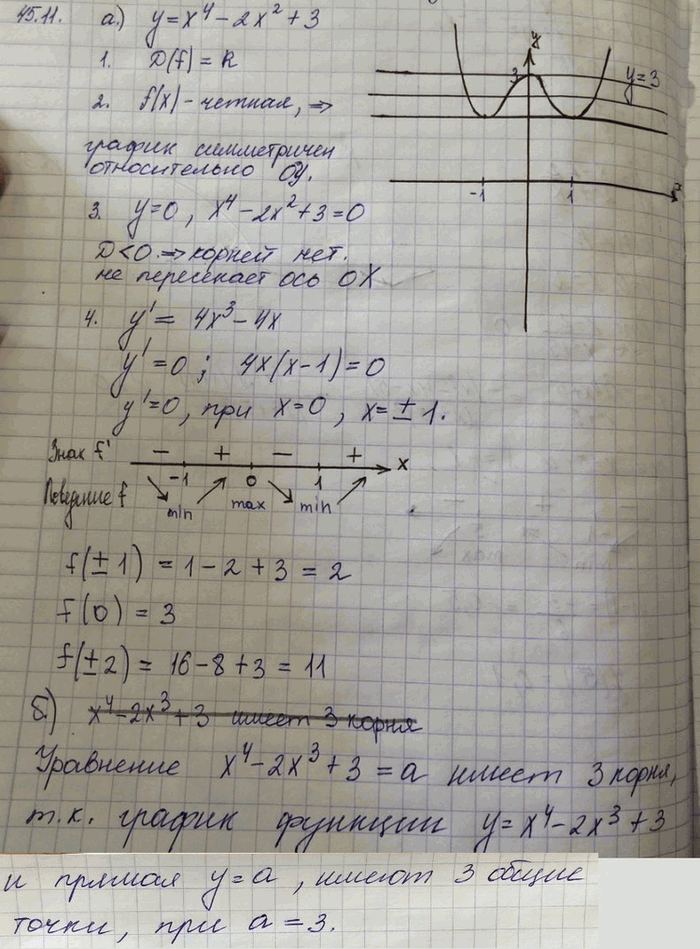 45.11. а.) y = x⁴ - 2x² + 3
1. D(f) = R
2. f(x) - четная, ⇒
график симметричен
относительно OY.
3. y=0, x⁴ - 2x² + 3 = 0
D<0 ⇒ корней нет.
не пересекает ось OX
y
3
y=3
-1 1
x
4. y' = 4x³ - 4x
y' = 0 ; 4x(x-1) = 0
y'=0, при x=0, x=±1.
Знак f' - + - + x
-1 0 1
Поведение f min max min
f(±1) = 1 - 2 + 3 = 2
f(0) = 3
f(±2) = 16 - 8 + 3 = 11
б) x⁴ - 2x³ + 3 имеет 3 корня
Уравнение x⁴ - 2x³ + 3 = a имеет 3 корня,
т.к. график функции y = x⁴ - 2x³ + 3
и прямая y = a, имеют 3 общие
точки, при a = 3.